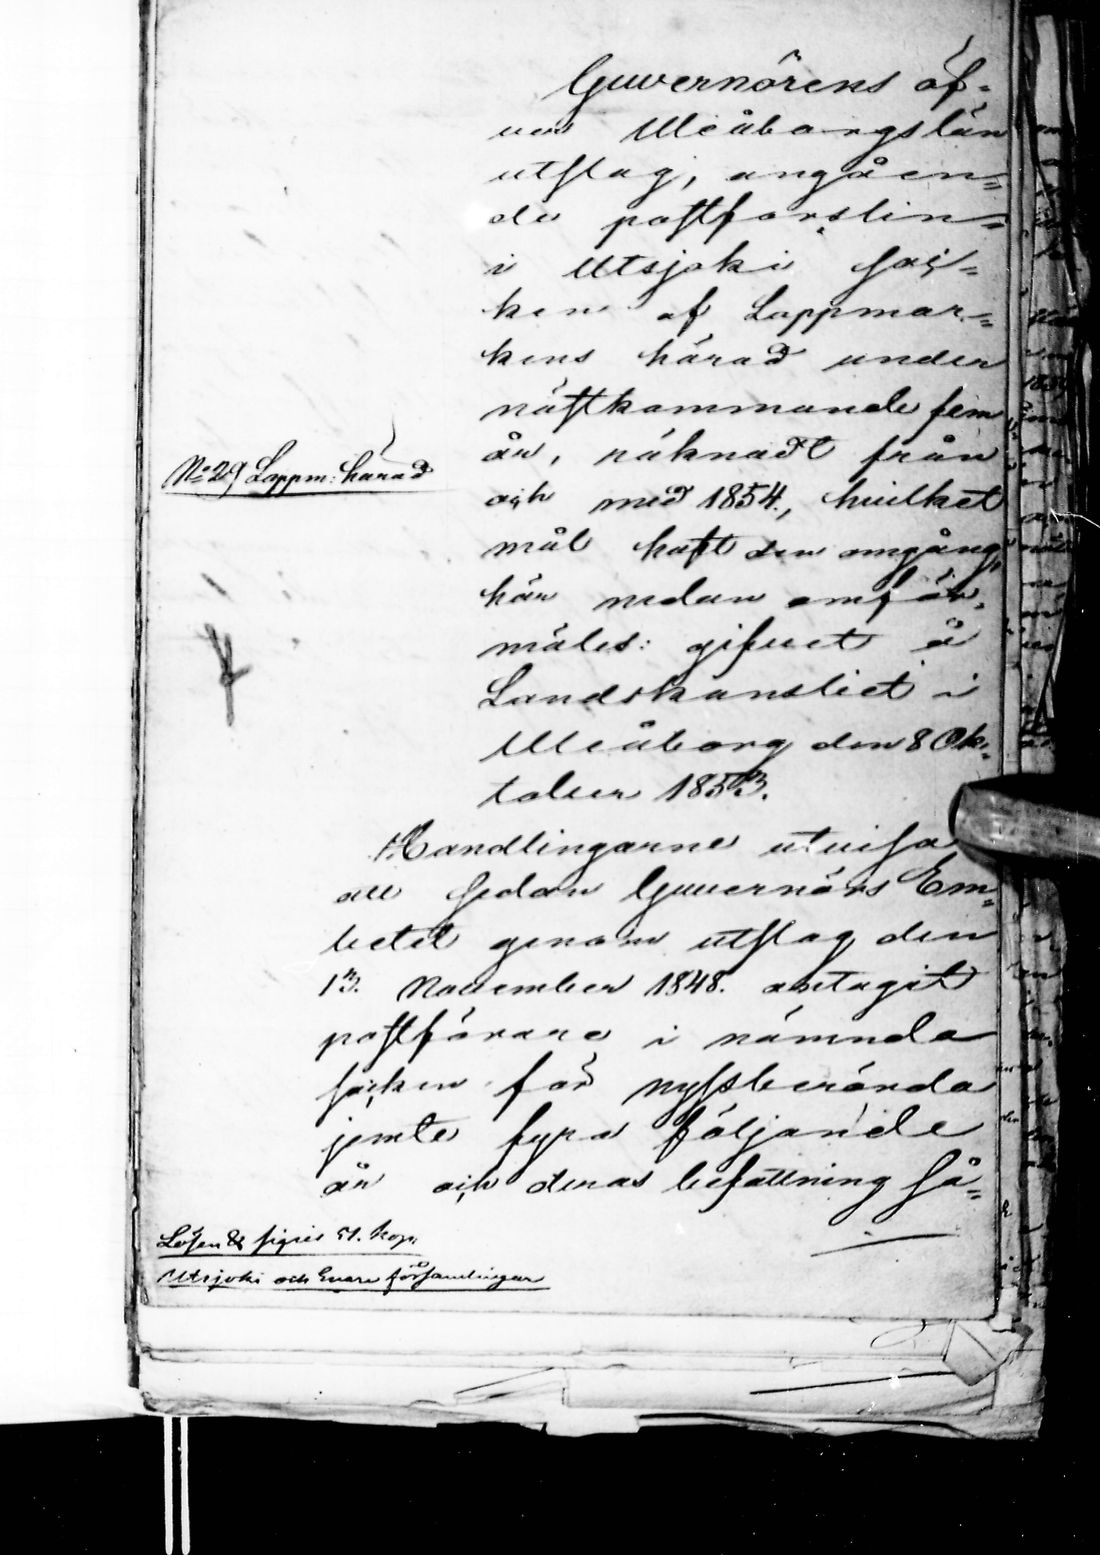 Guvernörens öf-
ver Uleåborgs län
utslag, angåen-
de postförslin-
i Utsjoki soc-
ken af Lappmar-
kens härad under
nästkommande fem
år, räknadt från
och med 1854., hvilket
mål haft den omgång,
här nedan omför-
mäles: gifvet å
Landskansliet i
Uleåborg den 8 Ok-
tober 1853.
No 29 Lappm: härad
Handlingarne utvisa
att sedan Guvernörs Em-
betet genom utslag den
13. November 1848. antagit
postförare i nämnde
socken för nyssberörda
jemte fyra följande
år och deras befattning så-
Lösen & sigill 51. kop.
Utsjoki och Enare församlingar